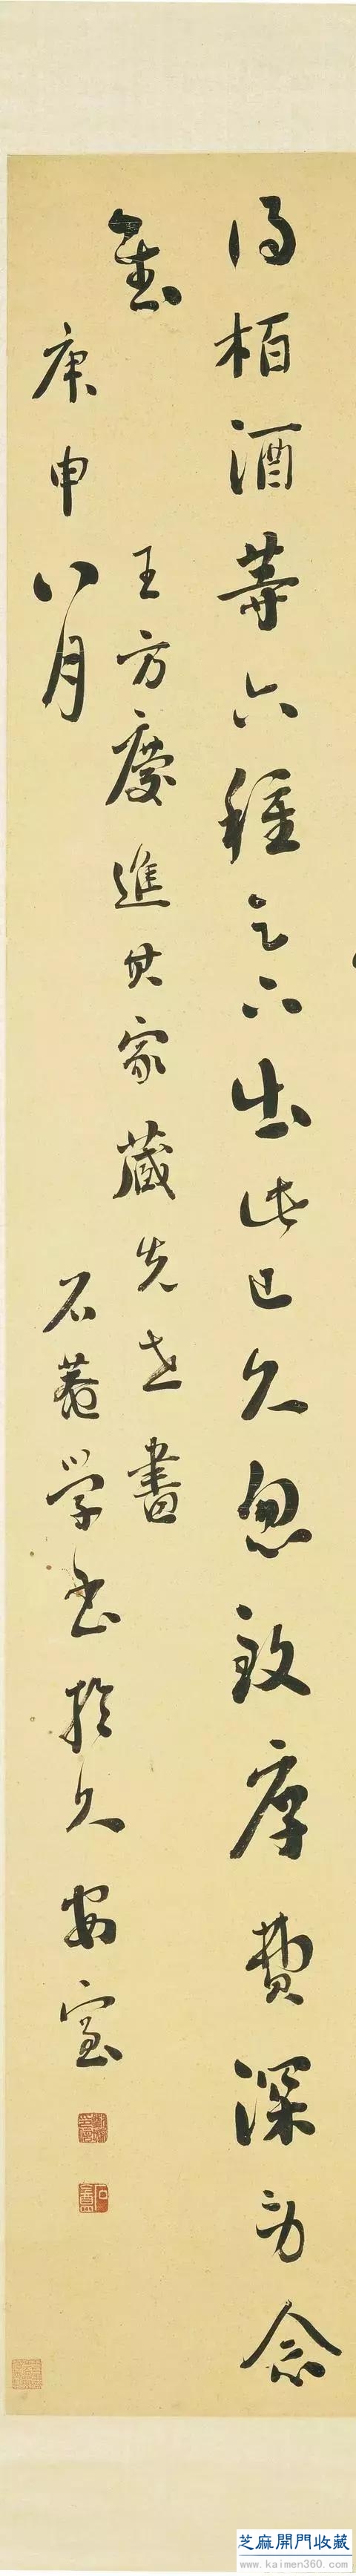 得柏酒等六種足下出此已久忽致厚費深勞念
慰
王方慶進其家藏先世書
庚申八月
石菴學書於久安室
芝麻開門收藏
www.kaimen360.com